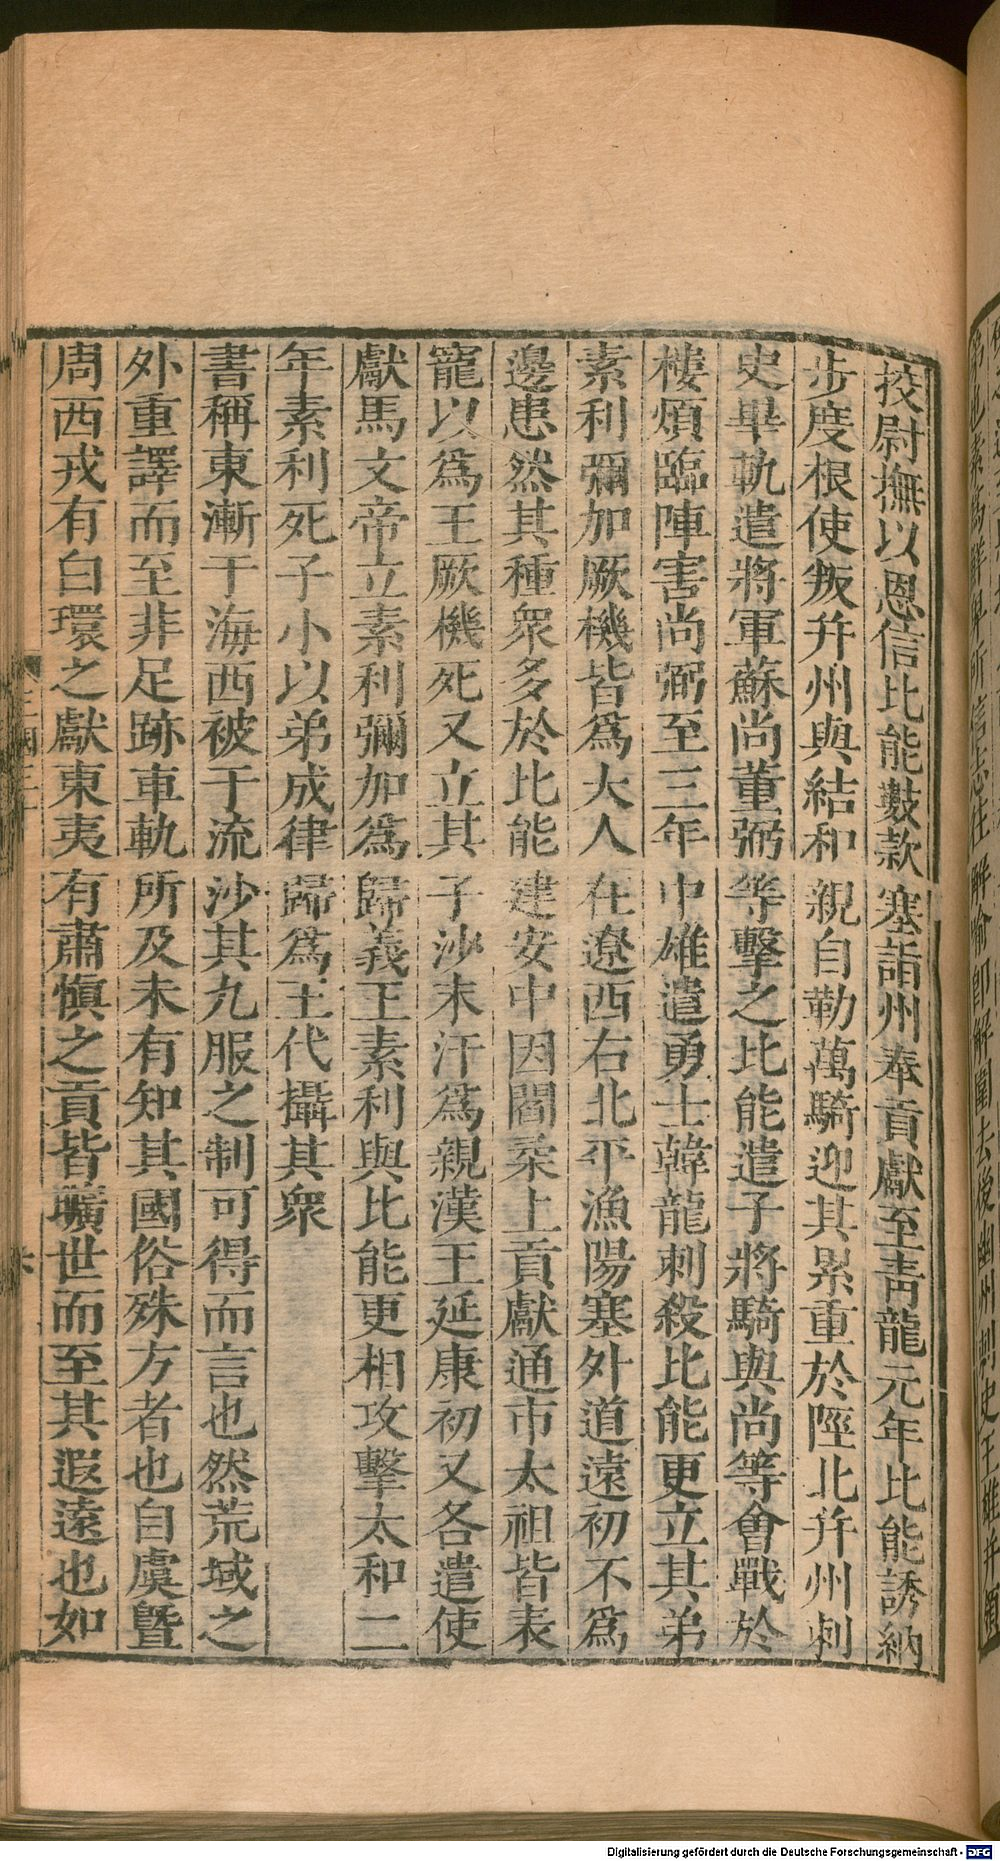 挍尉撫以恩信比能數款塞詣州奉貢獻至靑龍元年比能誘納
步度根使叛幷州與結和親自勒萬騎迎其累重於陘北幷州刺
史畢軌遣將軍蘇尚董弼等擊之比能遣子將騎與尚等會戰於
樓煩臨陣害尚弼至三年中雄遣勇士韓龍刺殺比能更立其弟
素利彌加厥機皆爲大人在遼西右北平漁陽塞外道遠初不爲
邊患然其種衆多於比能建安中因閻柔上貢獻通市太祖皆表
寵以爲王厥機死又立其子沙末汗爲親漢王延康初又各遣使
獻馬文帝立素利彌加爲歸義王素利與比能更相攻擊太和二
年素利死子小以弟成律歸爲王代攝其衆
書稱東漸于海西被于流沙其九服之制可得而言也然荒域之
外重譯而至非足跡車軌所及未有知其國俗殊方者也自虞曁
周西戎有白環之獻東夷有肅愼之貢皆曠世而至其遐遠也如
Digitalisierung gefördert durch die Deutsche Forschungsgemeinschaft - DFG